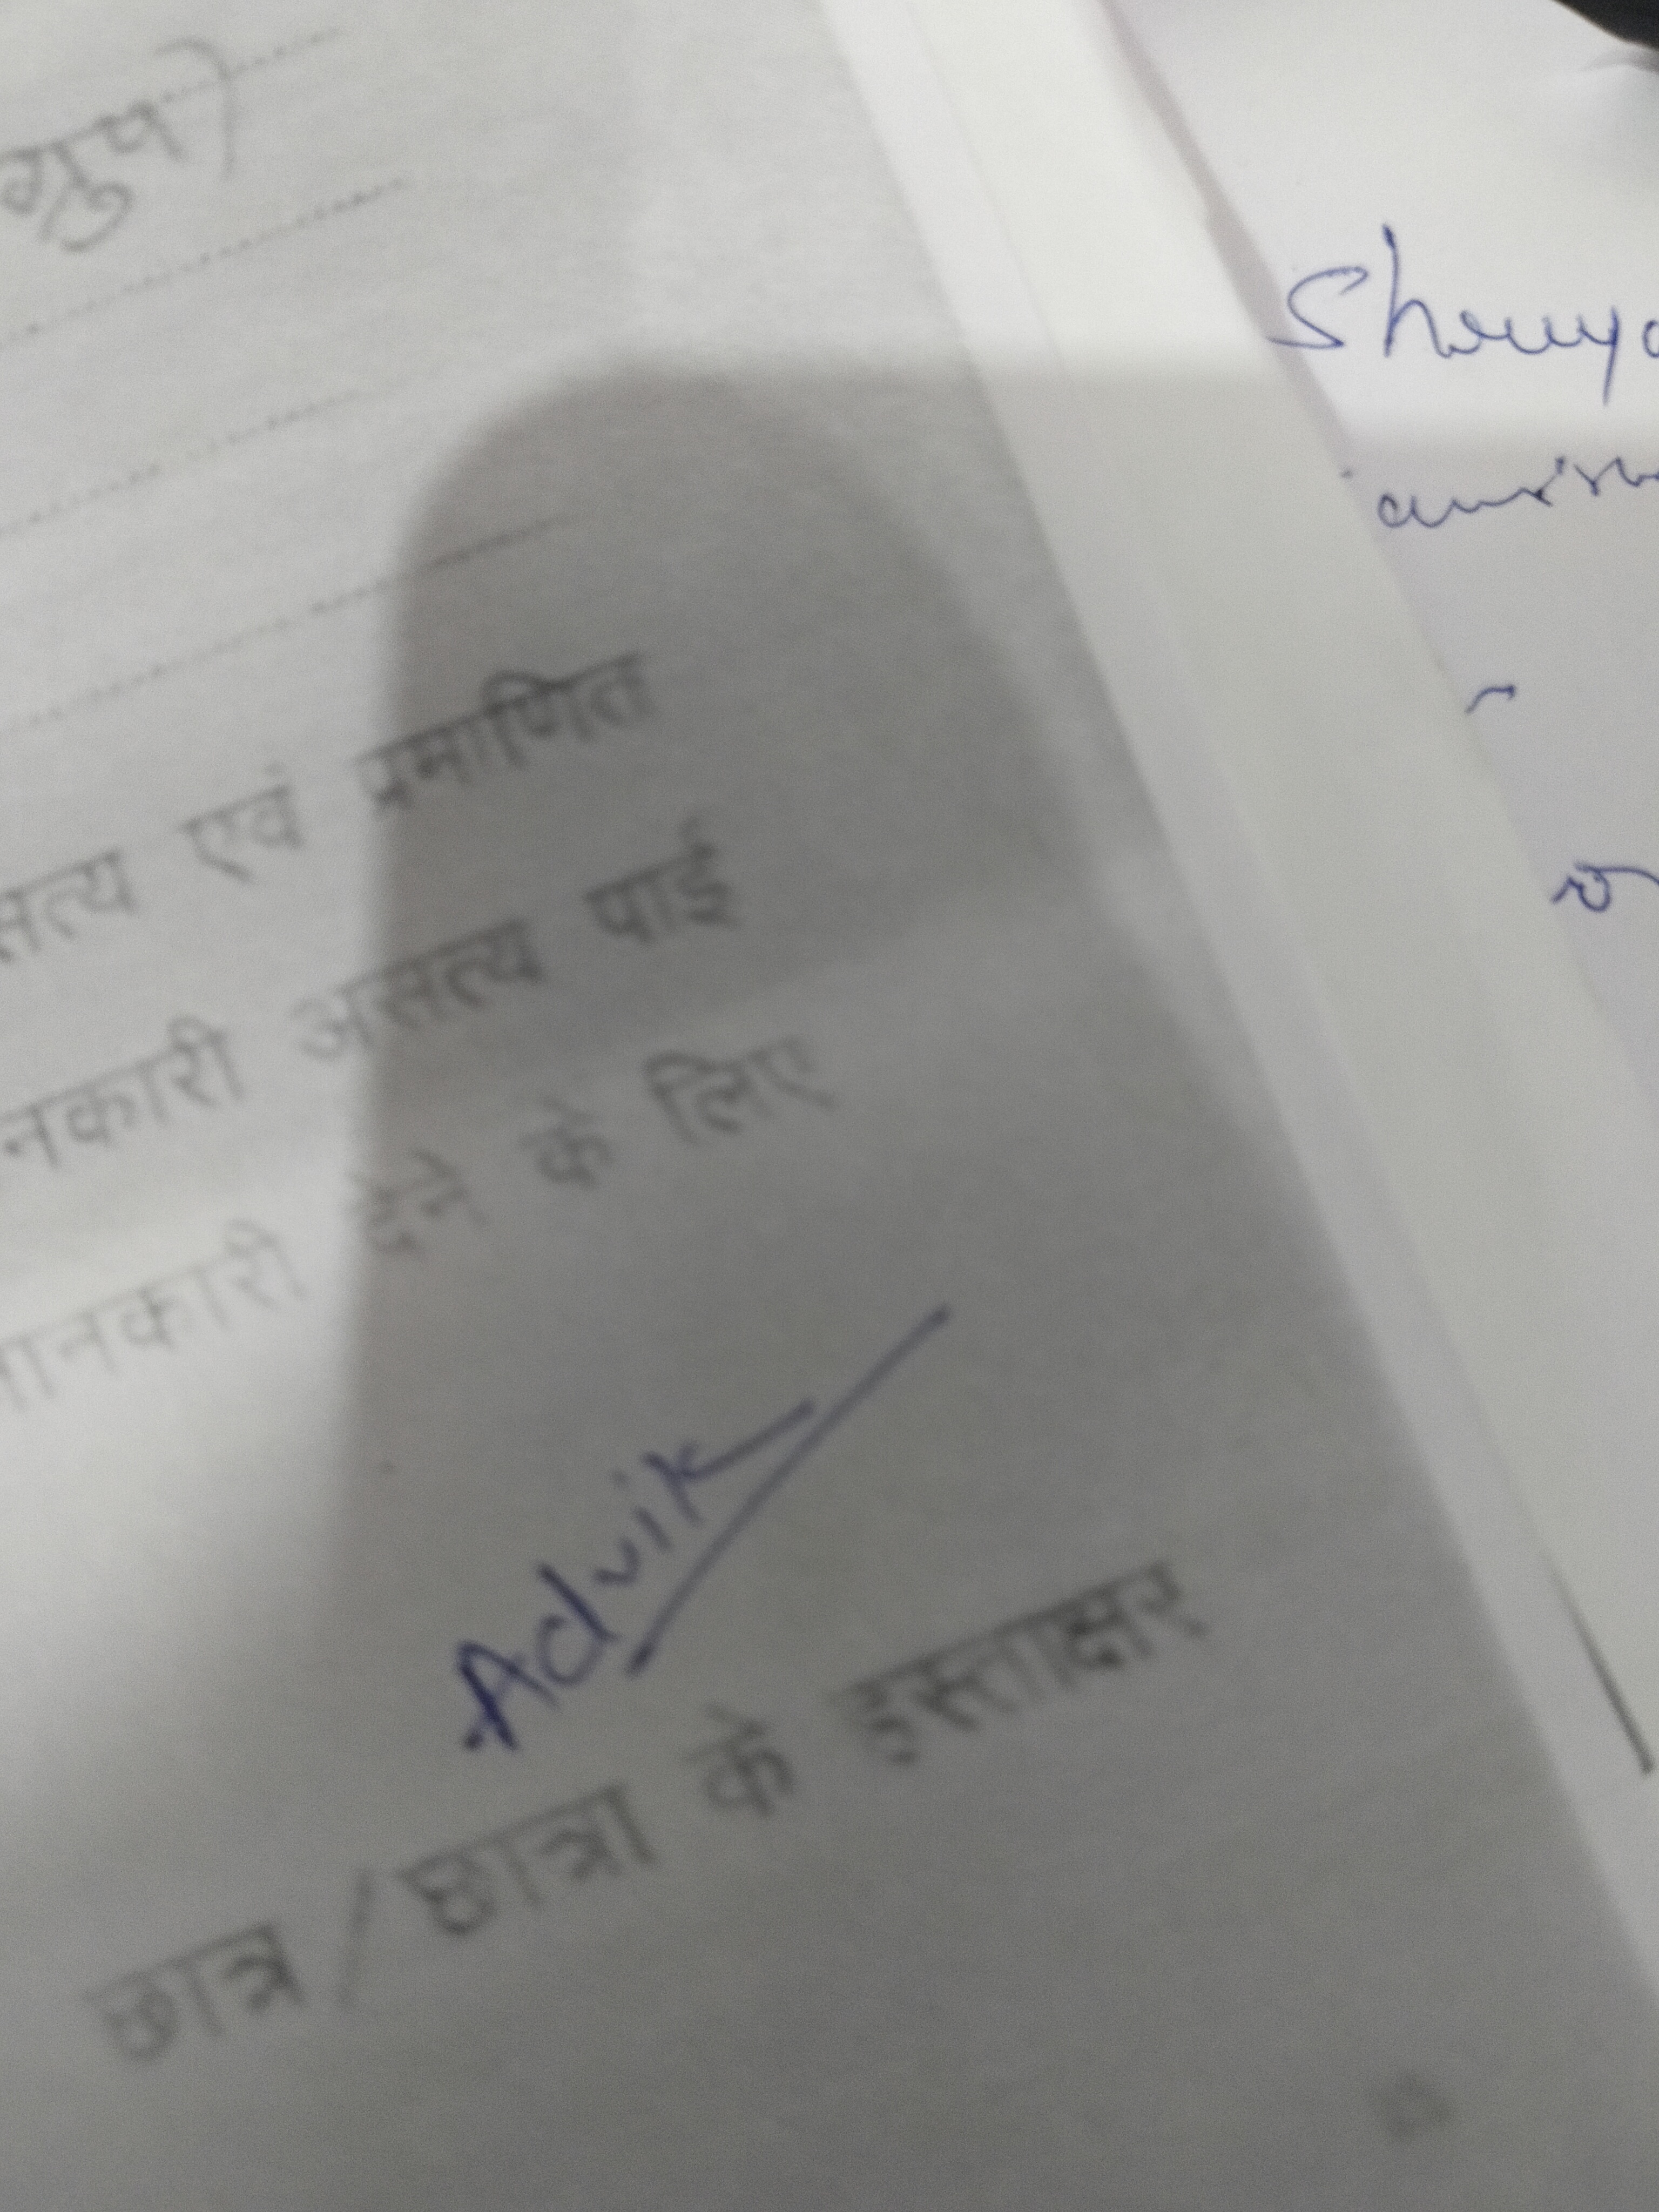 ग्रुप)
सत्य एवं प्रमाणित
नकारी असत्य पाई
ानकारी देने के लिए
Advik
छात्र/छात्रा के हस्ताक्षर